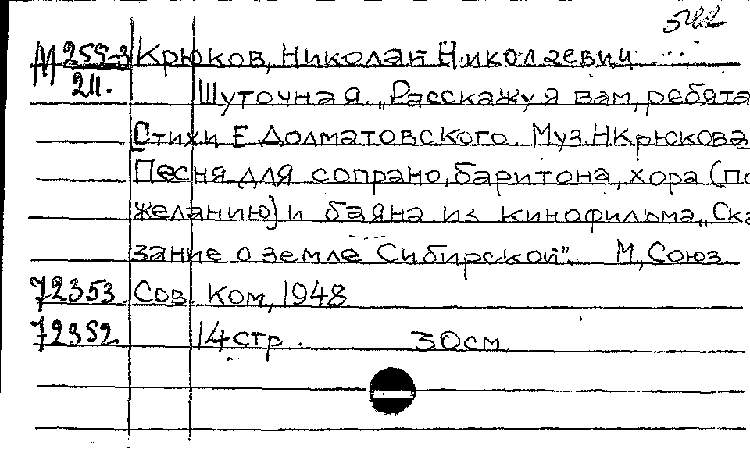 542
М 259-3 Крюков, Николай Николаевич
211. Шуточная. „Расскажу я вам, ребята
Стихи Е. Долматовского. Муз. Н Крюкова
Песня для сопрано, баритона, хора (по
желанию) и баяна из кинофильма „Ска
зание о земле Сибирской". М, Союз
72353 Сов Ком, 1948
72352 14 стр. 30см